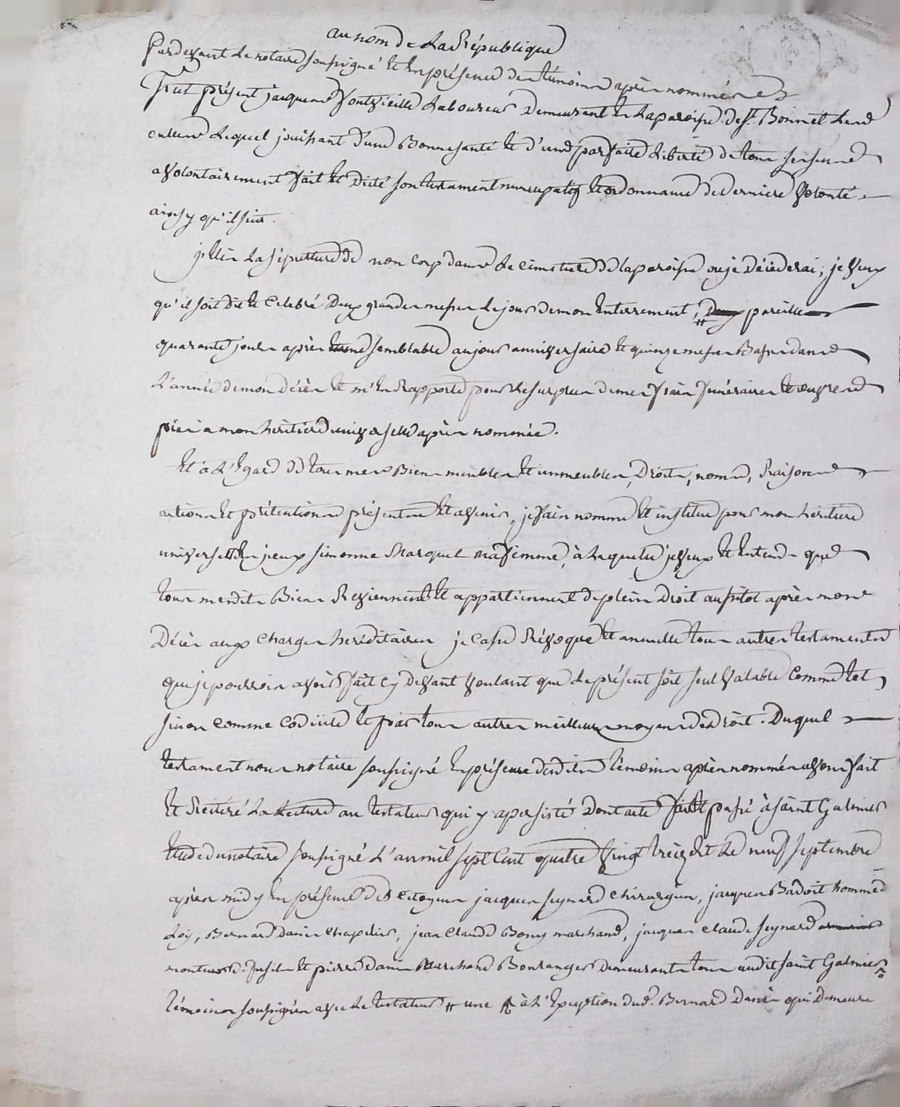 au nom de La République
Pardevant Le notaire soussigné Et En présence des témoins après nommés
Fut présent jacques Laboureur Demeurant En La paroisse de St. Bonnet Les
Lequel jouissant d'une Bonne santé Et d'une parfaite Liberté de tous ses sens
a volontairement fait Et Dicté son testament nuncupatif Et ordonnance de derniere volonté
ainsy qu'il suit.
j'Elis La sépulture de mon corp dans Le cimetiere de la paroisse ou je Décéderai; je veux
qu'il soit dit Et Celebré Deux grandes messes Le jour de mon Enterrement; Deux pareilles
quarante jours après semblable au jour anniversaire Et quinze messes Basses dans
L'année de mon décès Et m'En Rapporte pour Le surplus de mes frais funéraires Et œuvres
pies a mon héritiere universelle après nommée.
Et à L'Egard de tous mes Biens meubles Et immeubles, Droits, noms, Raisons
actions Et prétentions présents Et avenir, je fais nomme Et institue pour mon héritiere
universelle simonne ma femme, à Laquelle je veux Et Entends que
tous mesdits Biens Reviennent Et appartiennent de plein Droit aussitot après mon
Décès aux Charges héréditaires je casse Révoque Et annulle tous autres testaments
que je pourrois avoir fait cy devant voulant que Le présent soit seul valable Comme tel
sinon comme codicile Et par tous autres meilleurs moyens de Droit. Duquel
testament nous notaire soussigné En présence desdits témoins après nommés avons fait
Et Réiteré La Lecture au testateur qui y a persisté Dont acte fait Et passé à saint Galmier
Etude du notaire soussigné L'an mil sept Cent quatre vingt treize Et Le neuf septembre
après midy En présence des Citoyens jacques seynard Chirurgien, jacques Badoit homme de
Loy, Bernard Danis Chapelier, jean Claude marchand, jacques Claude seynard
Et pierre Danis Marchand Boulanger Demeurants tous audit saint Galmier
témoins soussignés avec Le testateur # une à L'Exception dud. Bernard Danis qui Demeure